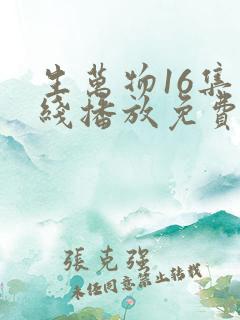 生萬物16集
綫播放免費
張克強
未经同意禁止转载